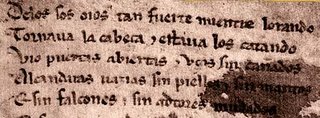 Delos sos oios tan fuerte mientre lorando
Tornava la cabeça / estava los catando
Vio puertas abiertas / uços sin cañados
Alcandaras vazias sin pielles / sin mantos
E sin falcones / sin adtores mudados